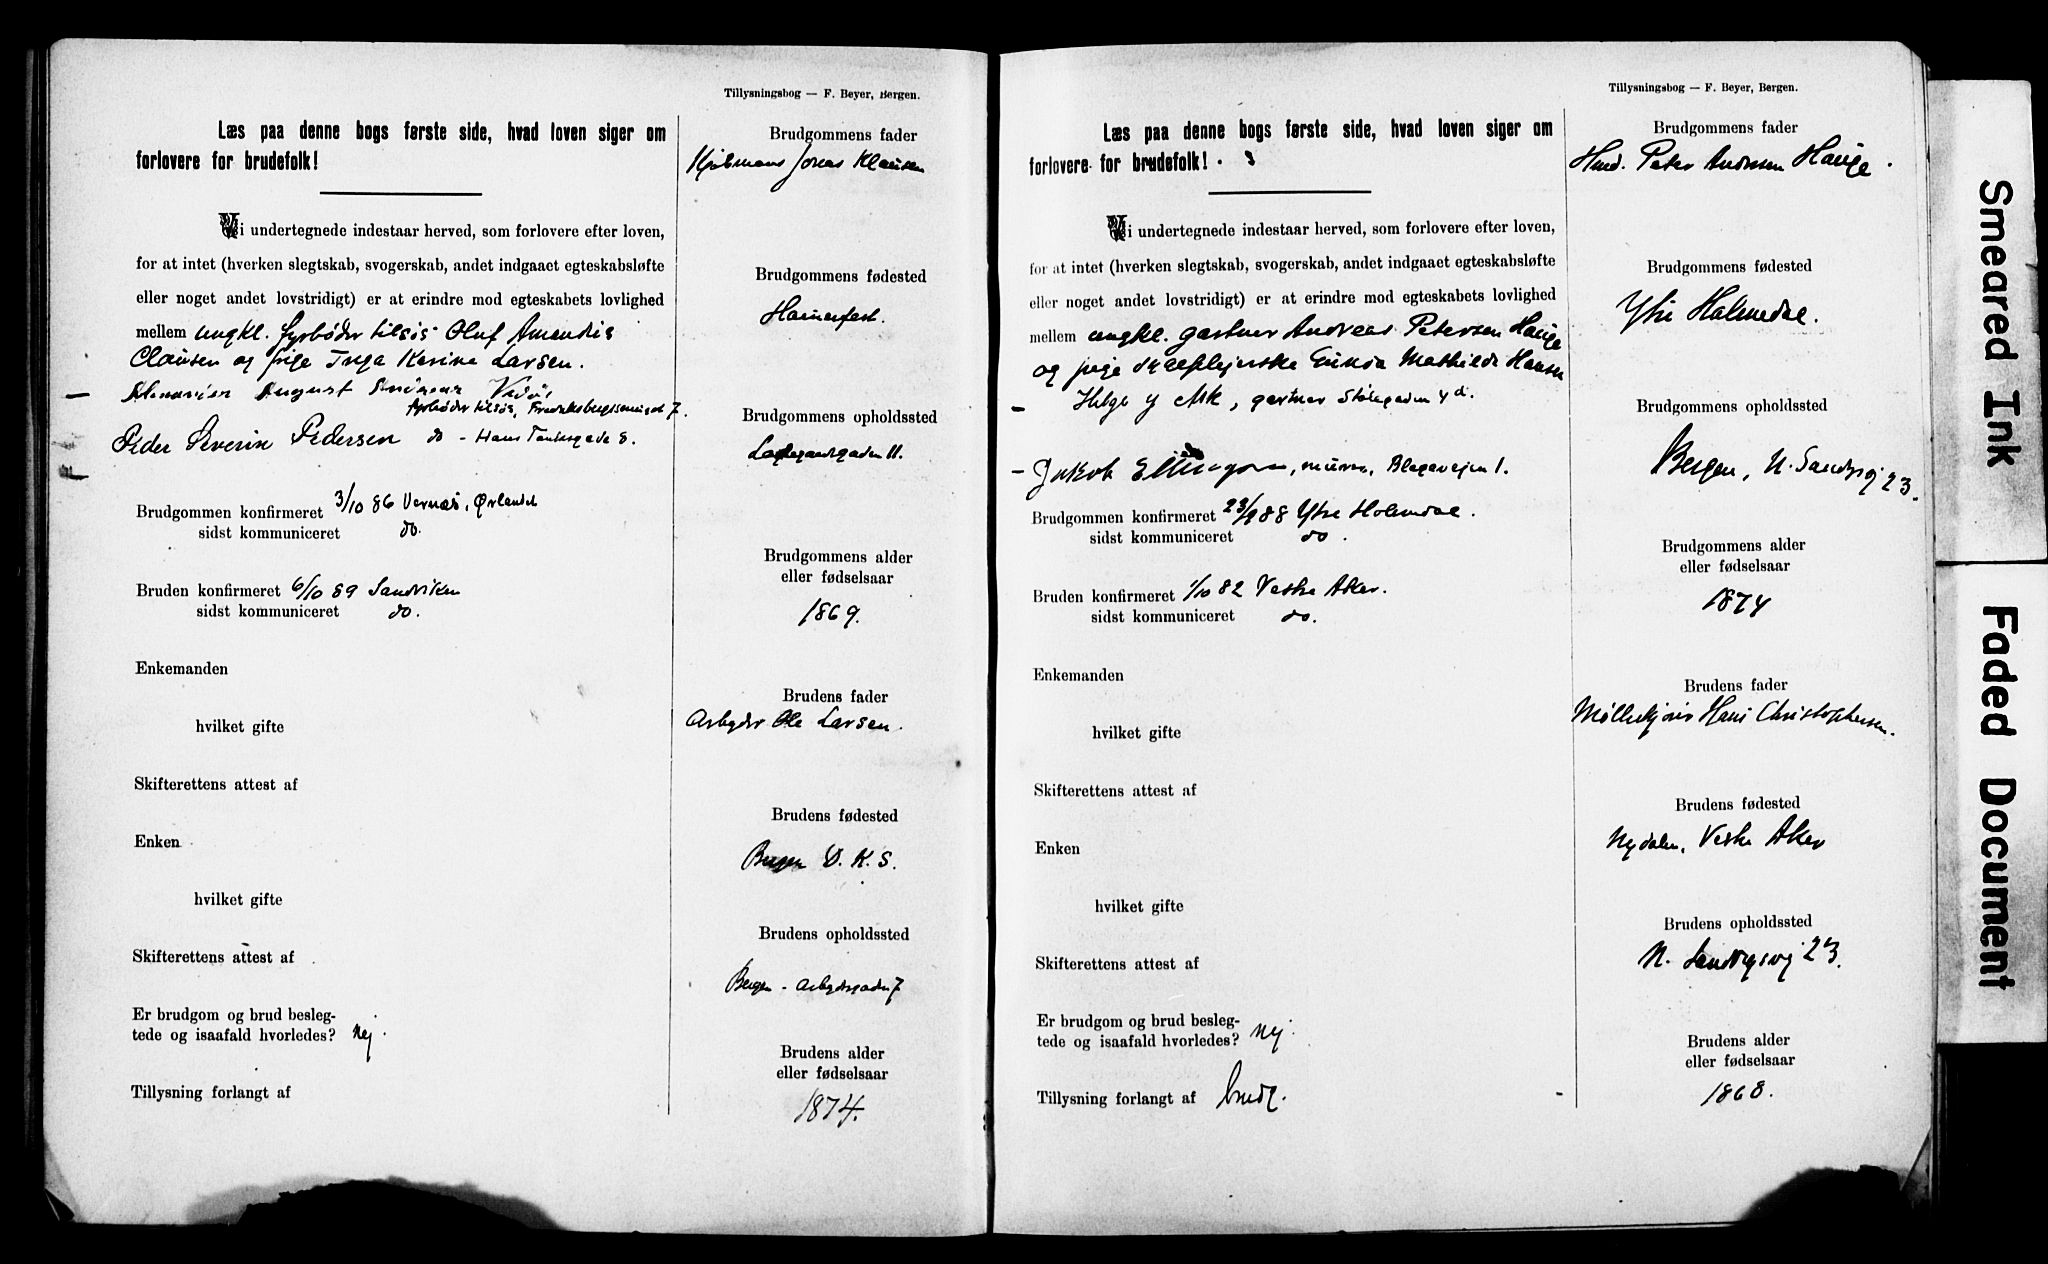 Tillysningsbog — F. Beyer, Bergen.
Læs paa denne bogs første side, hvad loven siger om
forlovere for brudefolk!
Vi undertegnede indestaar herved, som forlovere efter loven,
for at intet (hverken slegtskab, svogerskab, andet indgaaet egteskabsløfte
eller noget andet lovstridigt) er at erindre mod egteskabets lovlighed
mellem ungkl. fyrbøder tilsjøs Oluf Amandus
Clausen og pige Inga Karine Larsen.
August
fyrbøder tilsjøs, 7.
Peder Severin Pedersen do - Hans Tanksgade 8.
Brudgommen konfirmeret 3/10 86 Vernæs, Ørlandet
sidst kommuniceret do.
Bruden konfirmeret 6/10 89 Sandviken
sidst kommuniceret do.
Enkemanden
hvilket gifte
Skifterettens attest af
Enken
hvilket gifte
Skifterettens attest af
Er brudgom og brud besleg-
tede og isaafald hvorledes? Nej.
Tillysning forlangt af
Brudgommens fader
Jonas Klausen
Brudgommens fødested
Hammerfest.
Brudgommens opholdssted
Ladegaardsgaden 11.
Brudgommens alder
eller fødselsaar
1869.
Brudens fader
Arbejder Ole Larsen.
Brudens fødested
Bergen D. K. S.
Brudens opholdssted
Bergen - Arbejdergaden 7
Brudens alder
eller fødselsaar
1874.
Tillysningsbog — F. Beyer, Bergen.
Læs paa denne bogs første side, hvad loven siger om
forlovere for brudefolk!
Vi undertegnede indestaar herved, som forlovere efter loven,
for at intet (hverken slegtskab, svogerskab, andet indgaaet egteskabsløfte
eller noget andet lovstridigt) er at erindre mod egteskabets lovlighed
mellem ungkl. gartner Andreas Petersen Hauge
og pige Mathilde Hansen
Helge Ask, gartner Stølegaden 4 d.
Jakob Ellingsen, murer, Blegevejen 1.
Brudgommen konfirmeret 23/9 88 Ytre Holmedal.
sidst kommuniceret do.
Bruden konfirmeret 1/10 82 Vestre Aker.
sidst kommuniceret do.
Enkemanden
hvilket gifte
Skifterettens attest af
Enken
hvilket gifte
Skifterettens attest af
Er brudgom og brud besleg-
tede og isaafald hvorledes? Nej.
Tillysning forlangt af brudg.
Brudgommens fader
Husmd. Peter Andersen Hauge.
Brudgommens fødested
Ytre Holmedal.
Brudgommens opholdssted
Bergen, N. Sandvigsvej 23.
Brudgommens alder
eller fødselsaar
1874
Brudens fader
Møllekjører Hans Christophersen.
Brudens fødested
Nydalen, Vestre Aker
Brudens opholdssted
N. Sandvigsvej 23.
Brudens alder
eller fødselsaar
1868.
Smeared Ink
Faded Document